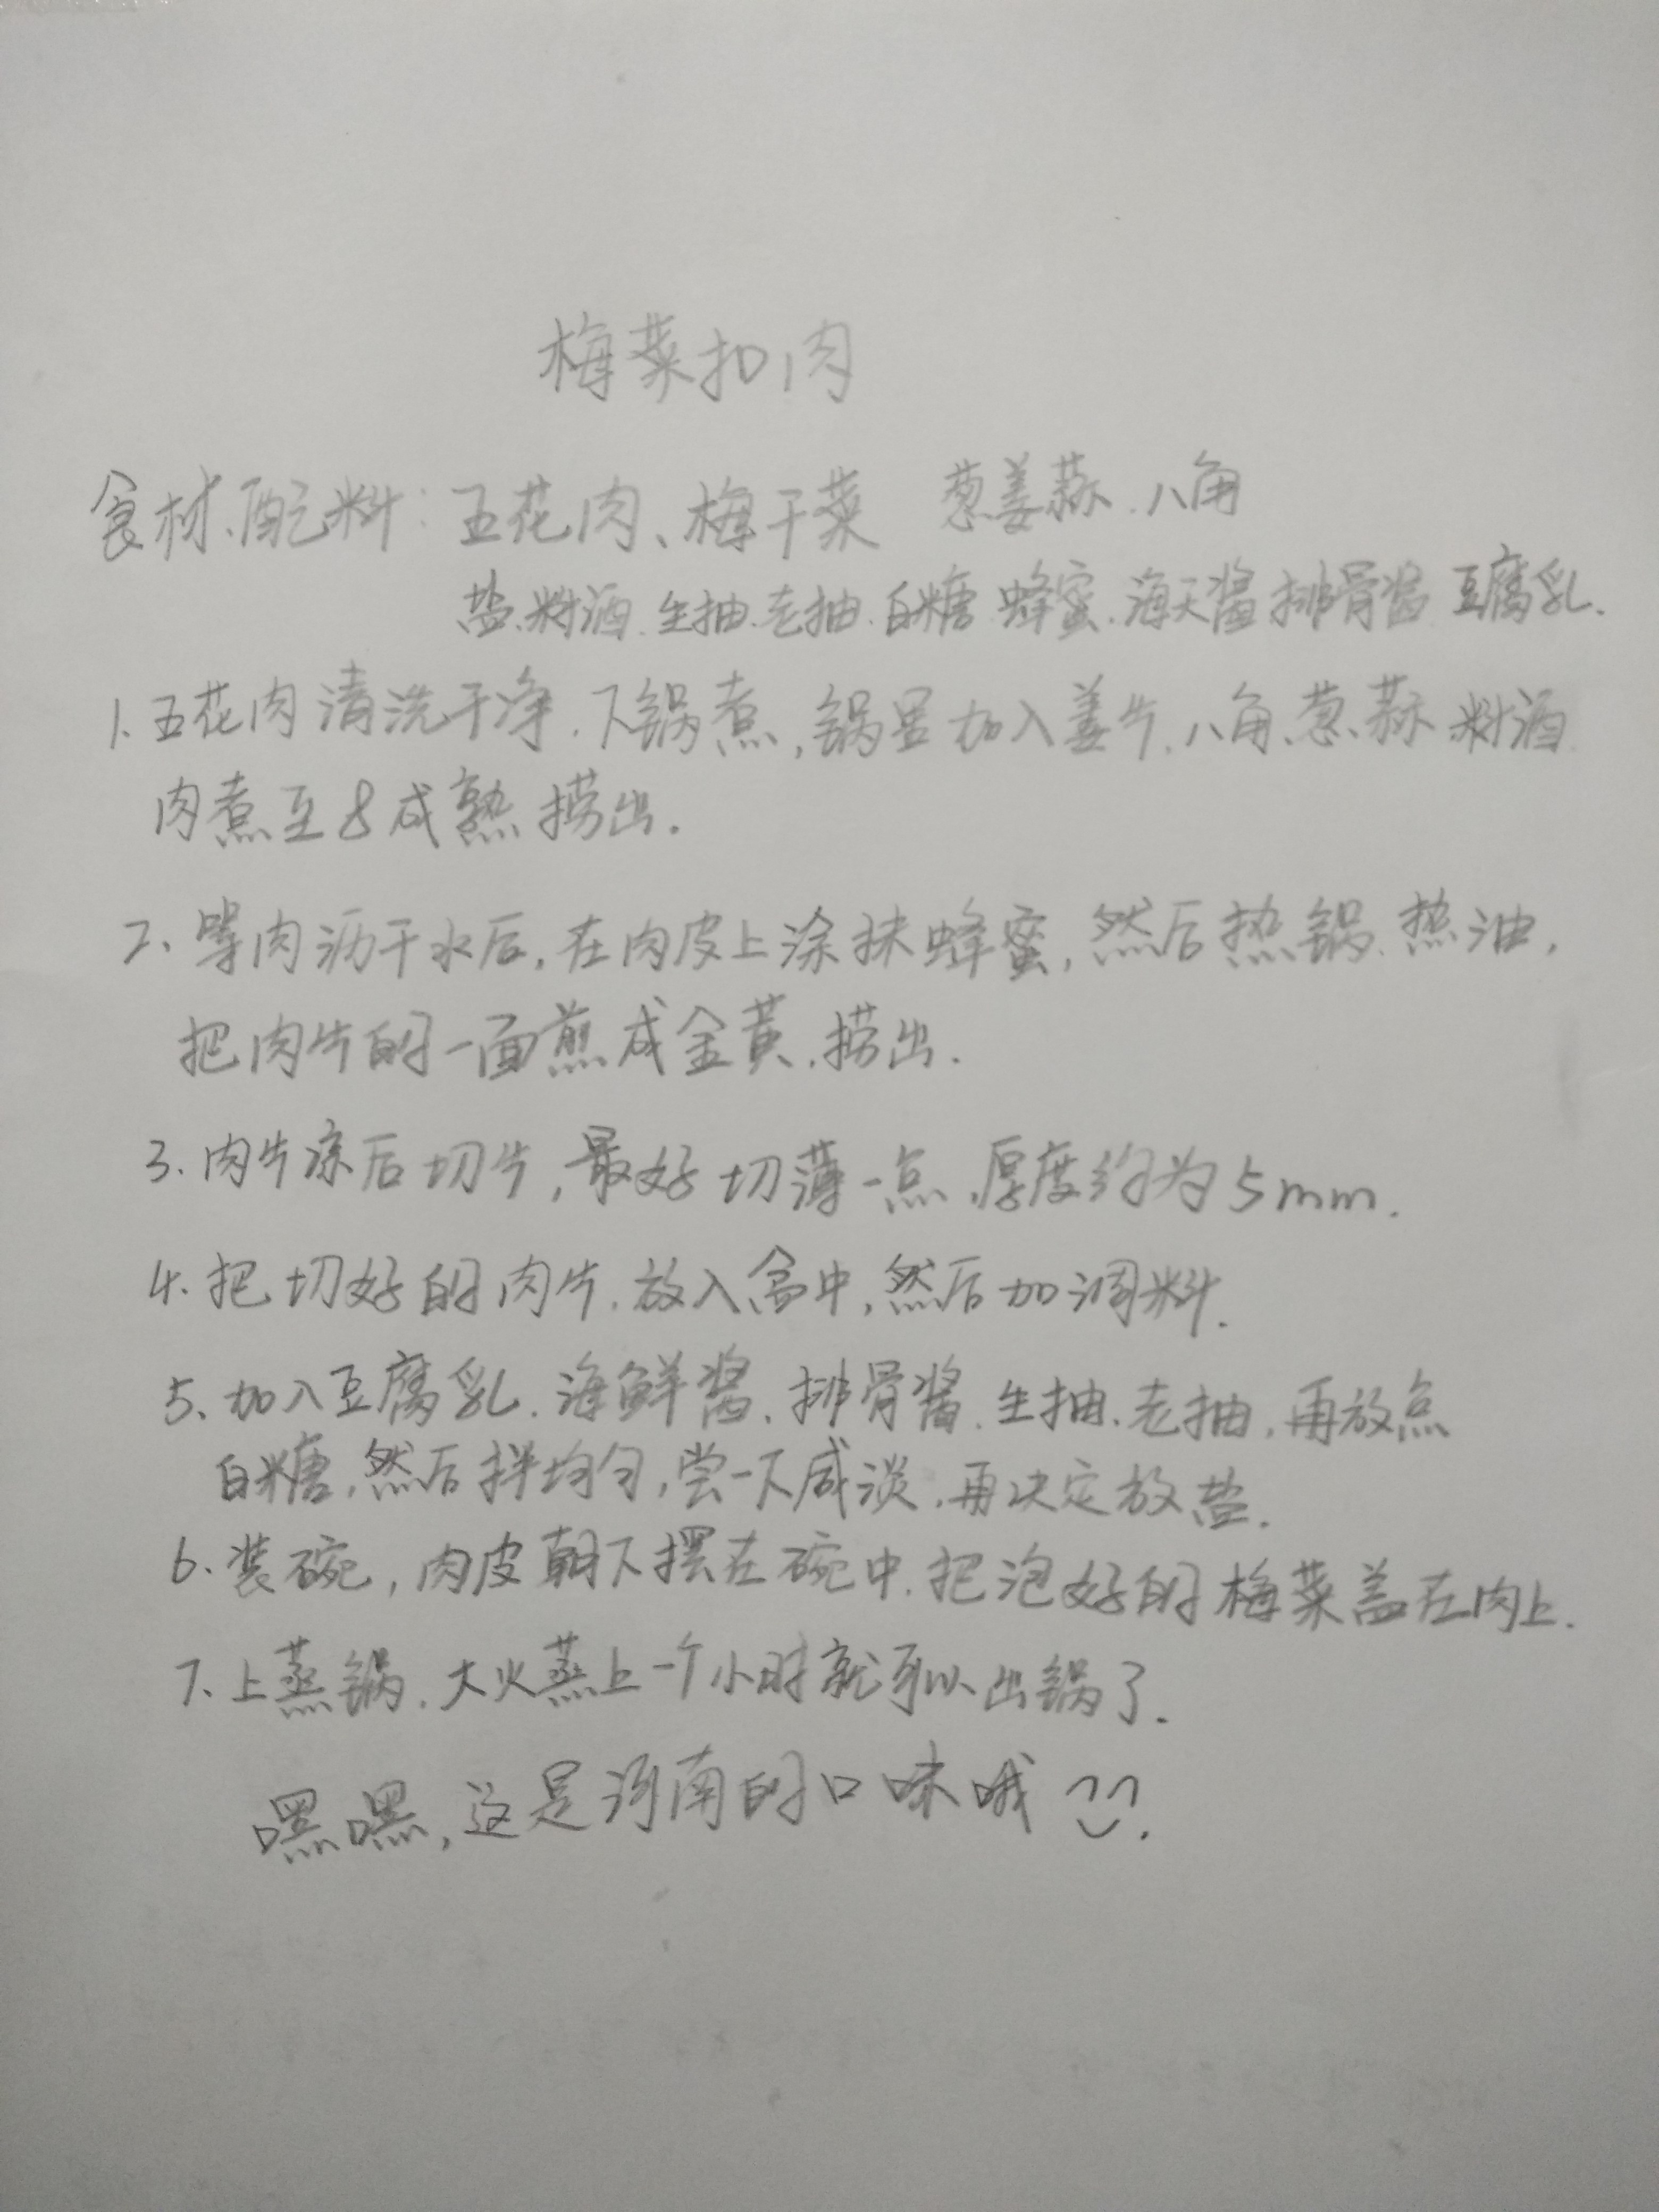 梅菜扣肉
食材、配料: 五花肉、梅干菜 葱姜蒜.八角
盐.料酒.生抽.老抽.白糖 蜂蜜.海天酱 排骨酱 豆腐乳.
1.五花肉清洗干净.下锅煮,锅里加入姜片.八角.葱.蒜 料酒
肉煮至8成熟捞出.
2、等肉沥干水后,在肉皮上涂抹蜂蜜,然后热锅.热油,
把肉片的一面煎成金黄.捞出.
3.肉片凉后切片,最好切薄一点.厚度约为5mm.
4.把切好的肉片.放入盆中,然后加调料.
5、加入豆腐乳.海鲜酱.排骨酱.生抽.老抽.再放点
白糖,然后拌均匀,尝一下咸淡.再决定放盐.
6.装碗,肉皮朝下摆在碗中.把泡好的梅菜盖在肉上.
7、上蒸锅.大火蒸上一个小时就可以出锅了.
嘿嘿,这是河南的口味哦